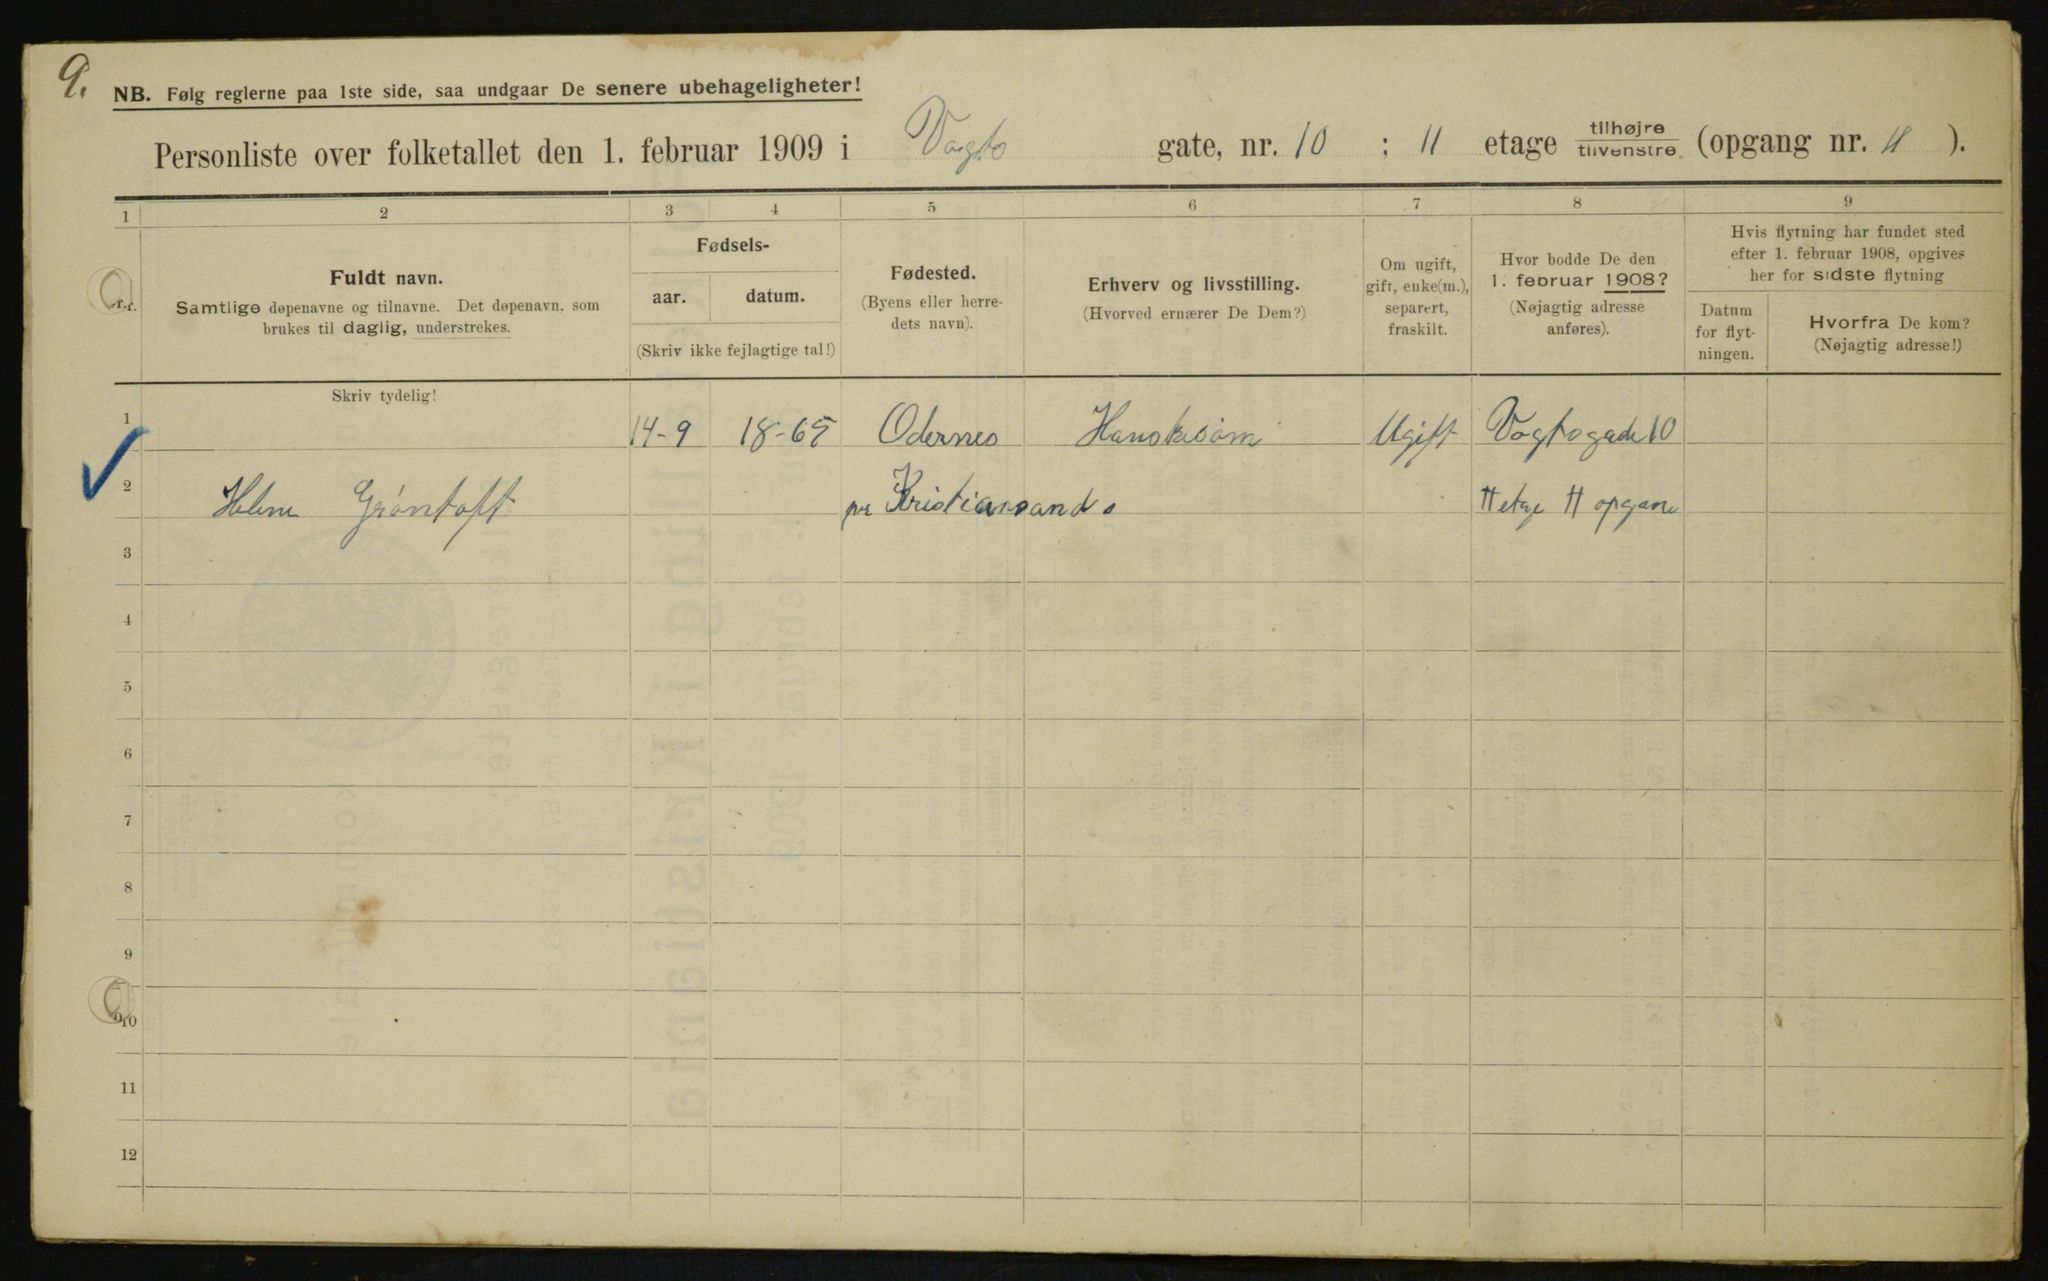 9.
NB. Følg reglerne paa 1ste side, saa undgaar De senere ubehageligheter!
Personliste over folketallet den 1. februar 1909 i Vogts gate, nr. 10 ; 11 etage tilhøjre tilvenstre (opgang nr. 11 ).
1 2 3 4 5 6 7 8 9
Nr.
Fuldt navn.
Samtlige døpenavne og tilnavne. Det døpenavn, som
brukes til daglig, understrekes.
Fødsels-
aar. datum.
(Skriv ikke fejlagtige tal!)
Fødested.
(Byens eller herre-
dets navn).
Erhverv og livsstilling.
(Hvorved ernærer De Dem?)
Om ugift,
gift, enke(m.),
separert,
fraskilt.
Hvor bodde De den
1. februar 1908?
(Nøjagtig adresse
anføres).
Hvis flytning har fundet sted
efter 1. februar 1908, opgives
her for sidste flytning
Datum
for flyt-
ningen.
Hvorfra De kom?
(Nøjagtig adresse!)
Skriv tydelig!
1 14-9 18-65 Odernes Hanskesøm Ugift Vogtsgade 10
2 Helene Grøntoft pr Kristiansand. II etage II opgang
3
4
5
6
7
8
9
10
11
12